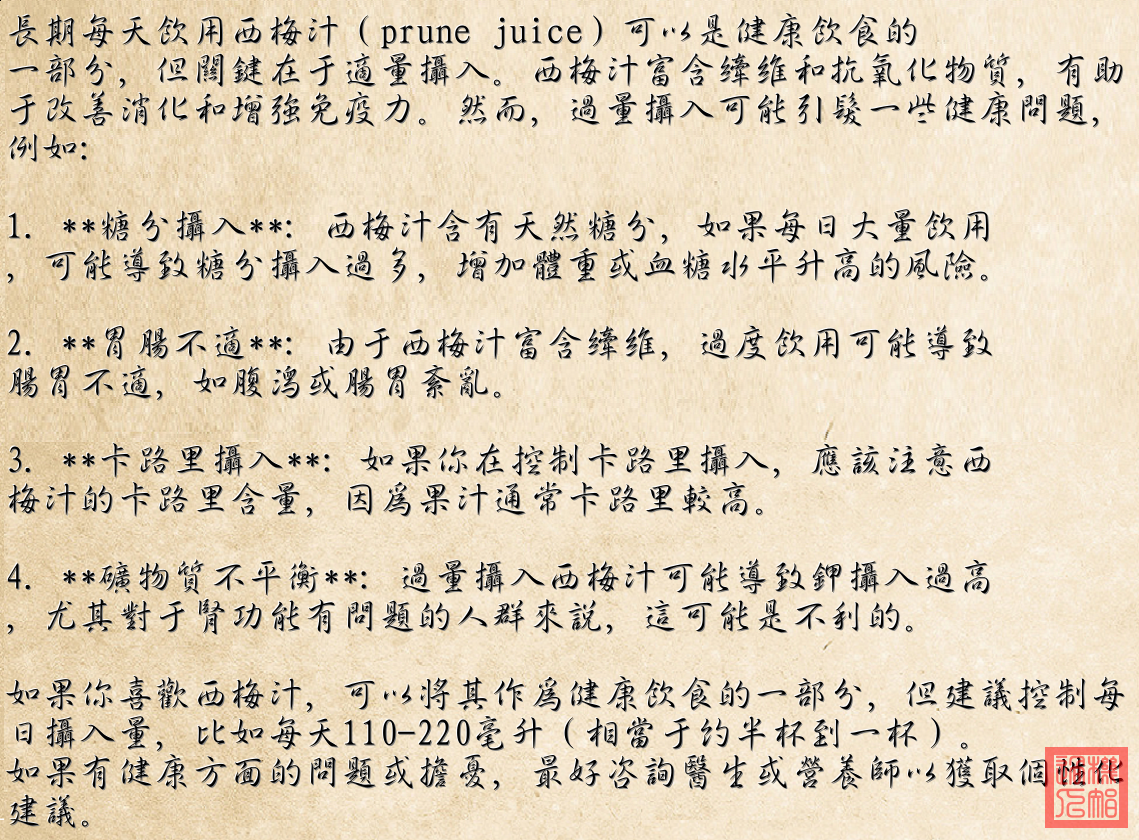 長期每天飲用西梅汁（prune juice）可以是健康飲食的
一部分，但關鍵在于適量攝入。西梅汁富含縴維和抗氧化物質，有助
于改善消化和增強免疫力。然而，過量攝入可能引髮一些健康問題，
例如：
1. **糖分攝入**：西梅汁含有天然糖分，如果每日大量飲用
，可能導致糖分攝入過多，增加體重或血糖水平升高的風險。
2. **胃腸不適**：由于西梅汁富含縴維，過度飲用可能導致
腸胃不適，如腹瀉或腸胃紊亂。
3. **卡路里攝入**：如果你在控制卡路里攝入，應該注意西
梅汁的卡路里含量，因爲果汁通常卡路里較高。
4. **礦物質不平衡**：過量攝入西梅汁可能導致鉀攝入過高
，尤其對于腎功能有問題的人群來説，這可能是不利的。
如果你喜歡西梅汁，可以將其作爲健康飲食的一部分，但建議控制每
日攝入量，比如每天110-220毫升（相當于約半杯到一杯）。
如果有健康方面的問題或擔憂，最好咨詢醫生或營養師以獲取個性化
建議。